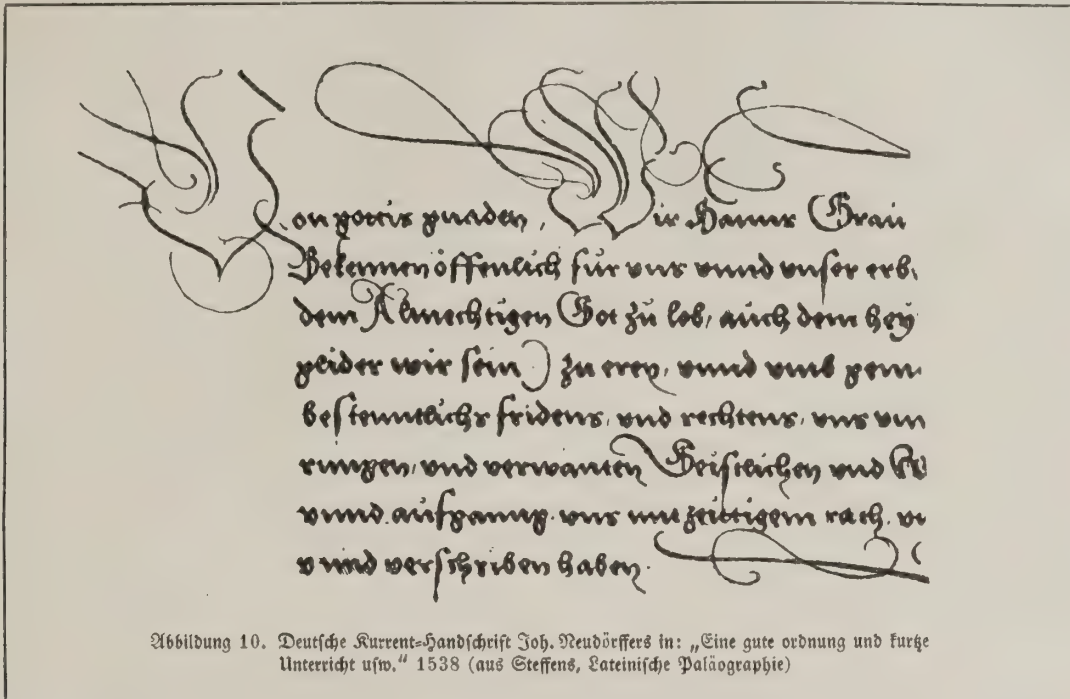 Von gottis gnaden, Wir Hanns Grau
Bekennen öffenlich für vns vnnd vnser erb,
dem Almechtigen Got zů lob, aůch dem hey
glider wir sein) zu eren, vnnd vmb gem
bestenntlichs fridens, vnd rechtens, vns vnn
rungen, vnd verwanten Geistlichen vnd
vnnd aufganng, vns mit zeittigem rath, vn
vnnd verschriben haben.
Abbildung 10. Deutsche Kurrent=Handschrift Joh. Neudörffers in: „Eine gute ordnung und kurtze
Unterricht usw.“ 1538 (aus Steffens, Lateinische Paläographie)